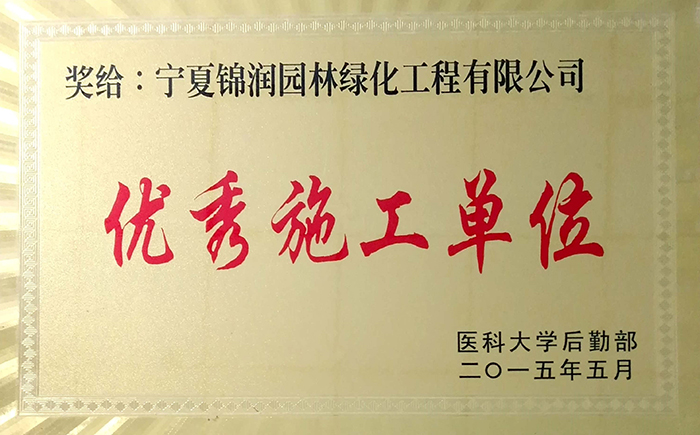 奖给：宁夏锦润园林绿化工程有限公司
优秀施工单位
医科大学后勤部
二〇一五年五月